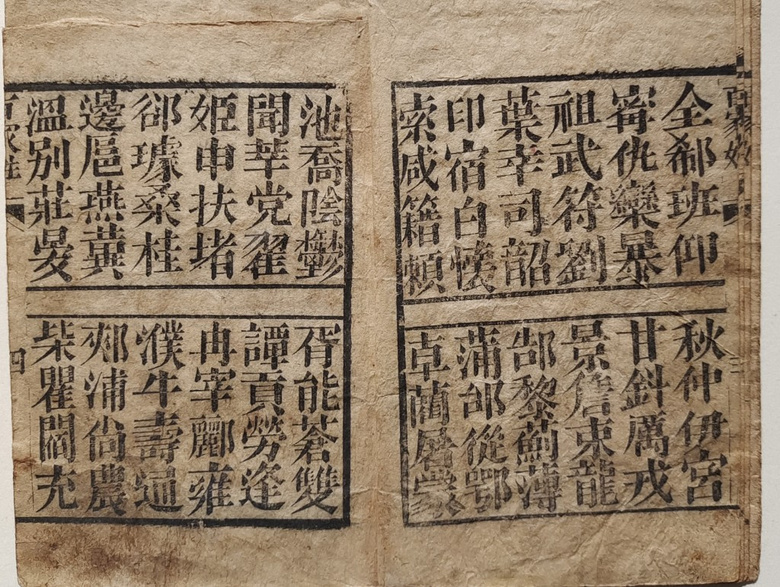 百家姓
三
全郗班仰
秋仲伊宮
寗仇欒暴
甘鈄厲戎
祖武符劉
景詹束龍
葉幸司韶
郜黎薊薄
印宿白懷
蒲邰從鄂
索咸籍賴
卓藺屠蒙
池喬隂鬱
胥能蒼雙
聞莘党翟
譚貢勞逄
姬申扶堵
冉宰酈雍
郤璩桑桂
濮牛壽通
邊扈燕冀
郟浦尙農
溫別莊晏
柴瞿閻充
百家姓
四